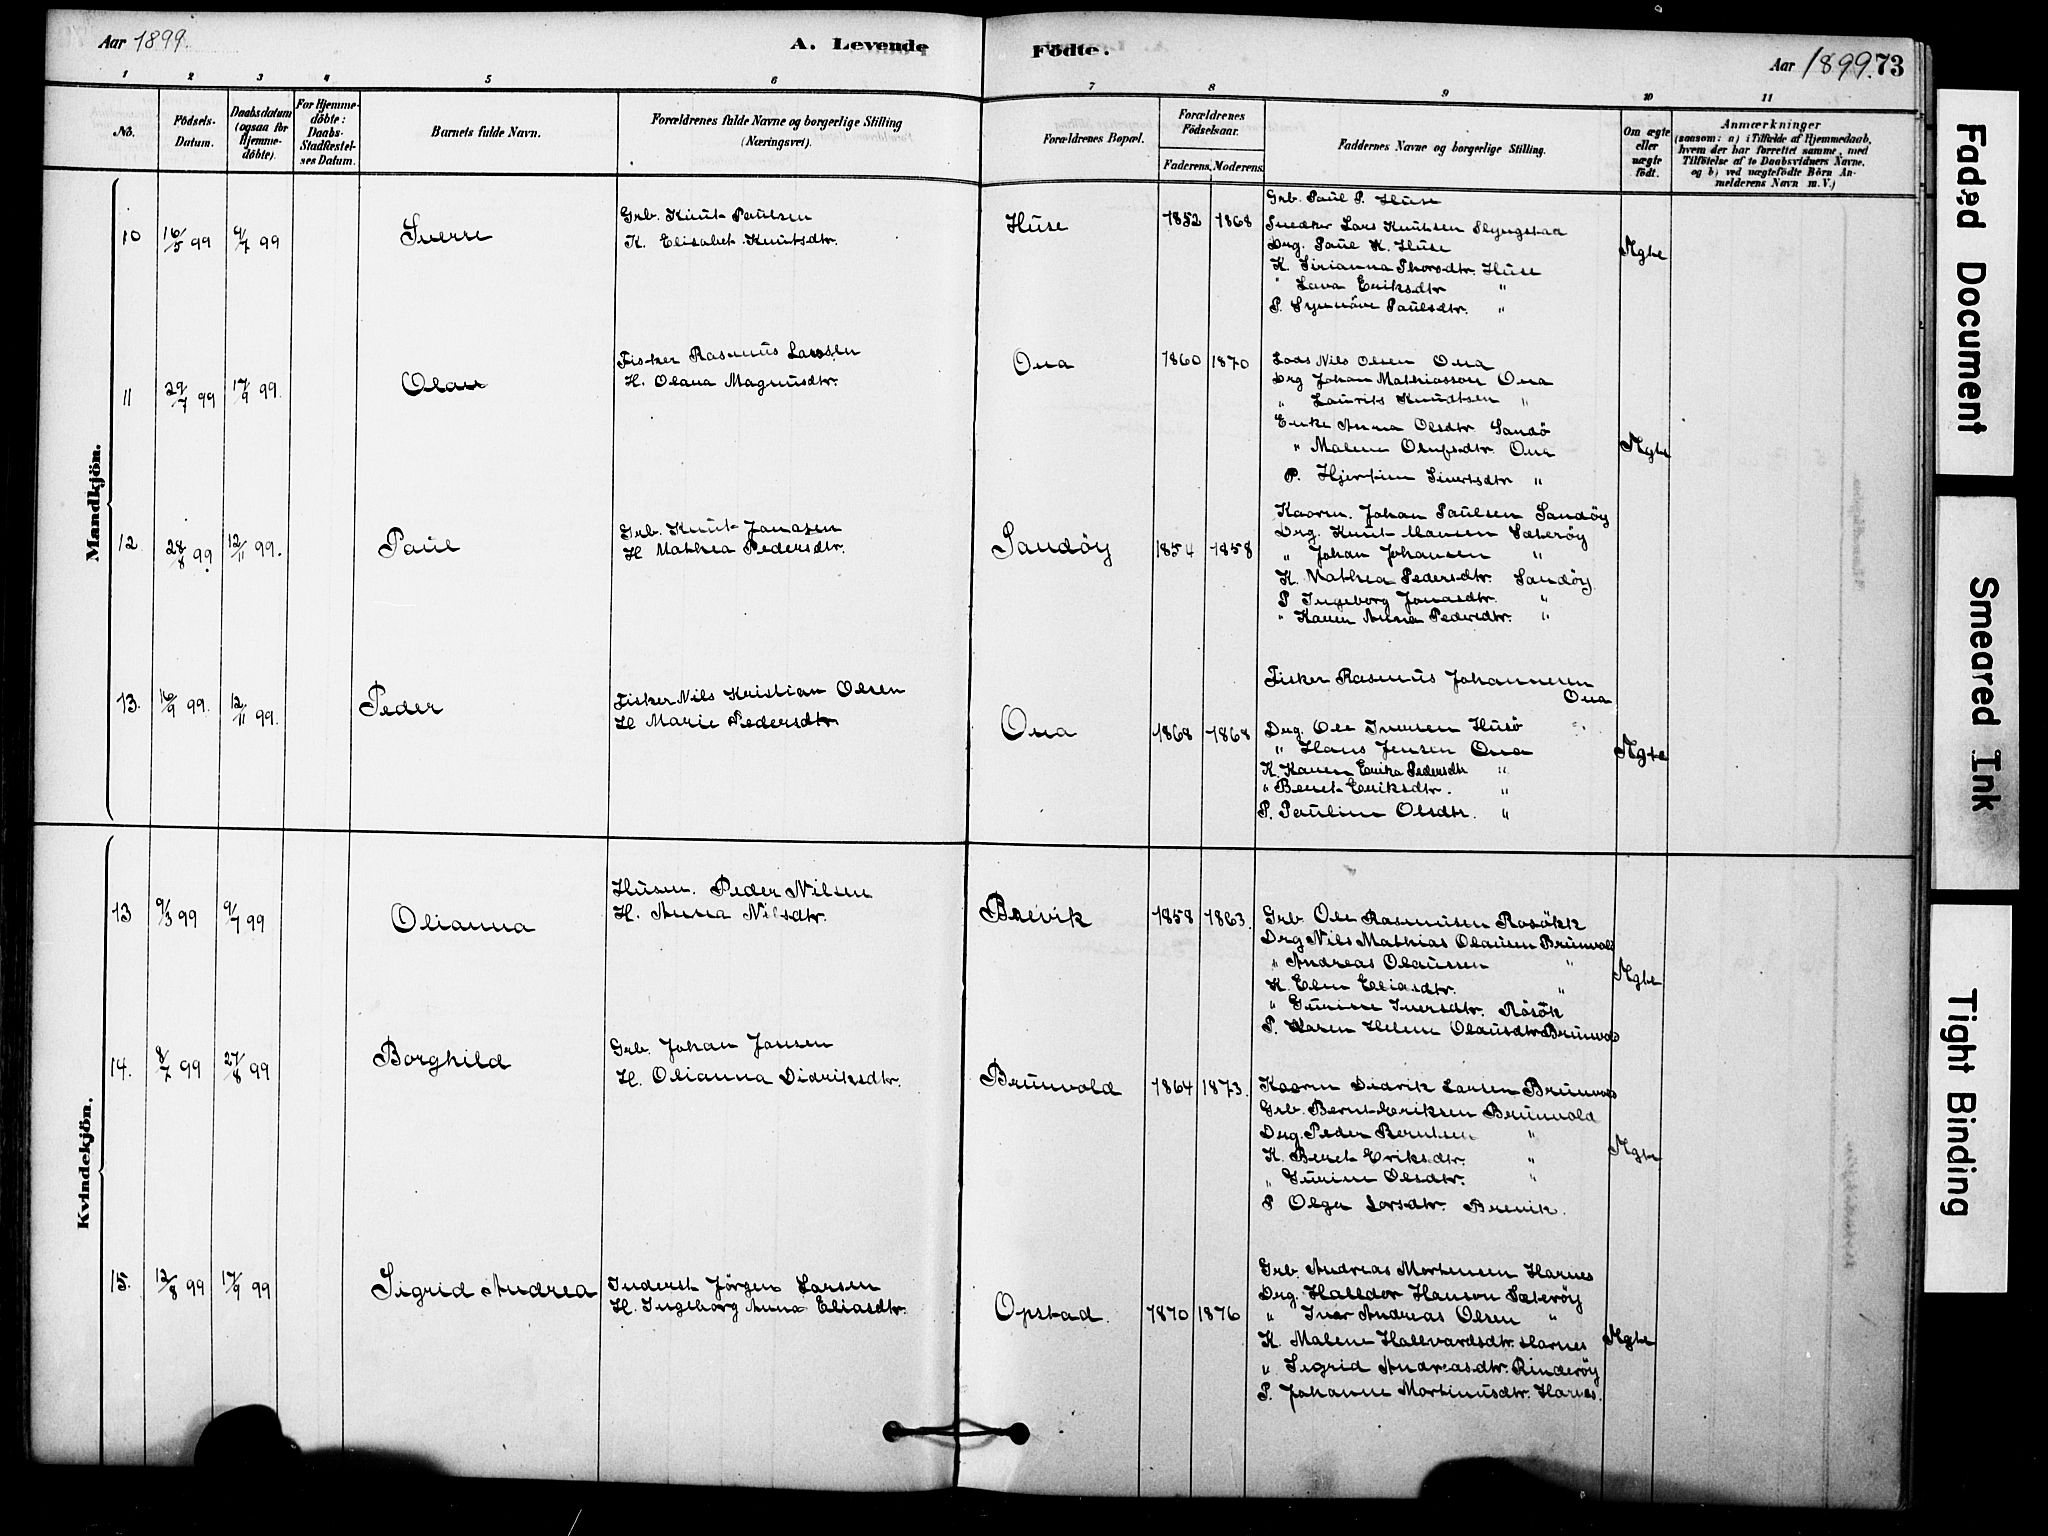 Aar 1899.
A. Levende Födte.
Aar 1899. 73
1 2 3 4 5 6 7 8 9 10 11
No.
Födsels-
Datum.
Daabsdatum
(ogsaa for
Hjemme-
döbte).
For Hjemme-
döbte:
Daabs-
Stadfæstel-
ses Datum.
Barnets fulde Navn.
Forældrenes fulde Navne og borgerlige Stilling
(Næringsvei).
Forældrenes Bopæl.
Forældrenes
Födselsaar.
Faderens. Moderens.
Faddernes Navne og borgerlige Stilling.
Om ægte
eller
uægte
födt.
Anmærkninger
(saasom: a) i Tilfælde af Hjemmedaab,
hvem der har forrettet samme, med
Tilföielse af to Daabsvidners Navne,
og b) ved uægtefödte Börn An-
melderens Navn m. V.)
Mandkjön.
10 16/5 99 9/7 99 Sverre
Grb. Knut Paulsen
K. Elisabet Knutsdtr.
Huse 1852 1868
Grb. Paul P. Huse
Snedker Lars Knutsen Slyngstad
Drg. Paul K. Huse
K. Sirianna Thorsdtr. Huse
" Lava Eriksdtr "
P. Synnöve Paulsdtr. "
Ægte
11 29/7 99 17/9 99. Olav
Fisker Rasmus Larsen
H. Olava Magnusdtr.
Ona 1860 1870
Lods Nils Olsen Ona
Drg Johan Mathiassen Ona
" Laurits Knudtsen "
Enke Anna Olsdtr Sandö
" Malene Olufsdtr. Ona
P. Hjertine Sivertsdtr "
Ægte
12 28/8 99 12/11 99. Paul
Grb. Knut Jonasen
H Mathea Pedersdtr.
Sandöy 1854 1858
Kaarm. Johan Paulsen Sandöy
Drg. Knut Hansen Sæteröy
" Johan Johansen "
K. Mathea Pedersdtr. Sandöy
P Ingeborg Jonasdtr. "
" Karen Anna Pedersdtr. "
13. 16/9 99. 12/11 99. Peder
Fisker Nils Kristian Olsen
H Marie Pedersdtr
Ona 1868 1868
Fisker Rasmus Johannesen
Ona
Drg. Ole Iversen Husö
" Hans Jensen Ona
K. Karen Erika Pedersdtr "
" Beret Eriksdtr. "
P. Pauline Olsdtr. "
Ægte
Kvindekjön.
13 9/3 99 9/7 99 Olianna
Husm. Peder Nilsen
H. Anna Nilsdtr.
Brevik 1858 1863.
Grb. Ole Rasmusen Rosökk
Drg Nils Mathias Olausen Brunvold
" Andreas Olaussen "
K. Elen Eliasdtr. "
" Gurine Iversdtr. Rösök
P. Karen Helene Olausdtr Brunvold
Ægte
14. 8/7 99 27/8 99 Borghild
Grb. Johan Jonsen
H. Olianna Didriksdtr.
Brunvold 1864 1873.
Kaarm Didrik Larsen Brunvold
Grb. Bernt Eriksen Brunvold
Drg. Peder Berntsen "
K. Beret Eriksdtr. "
" Gurine Olsdtr. "
P Olga Larsdtr. Brevik.
Ægte
15. 12/8 99 17/9 99 Sigrid Andrea
Inderst Jörgen Larsen
H. Ingeborg Anna Eliasdtr.
Opstad. 1870 1876
Grb. Andreas Mortensen Harnes
Drg. Halldor Hanson Sæteröy
" Iver Andreas Olsen "
K. Malene Hallvardsdtr. Harnes
" Sigrid Andreasdtr. Rinderöy
P. Johanne Martinusdtr. Harnes.
Ægte
Faded Document
Smeared Ink
Tight Binding